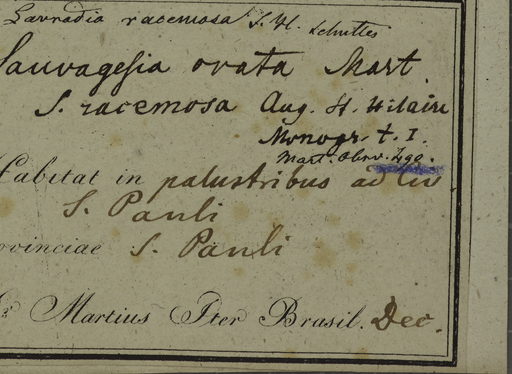 Lavradia racemosa S. H. Schultes
Sauvagesia ovata Mart.
S. racemosa Aug. St. Hilaire
Monogr. t. I.
Mart. Obrv. 490.
Habitat in palustribus ad civ
S. Pauli
ovinciae S. Pauli
Martius Iter Brasil. Dec.